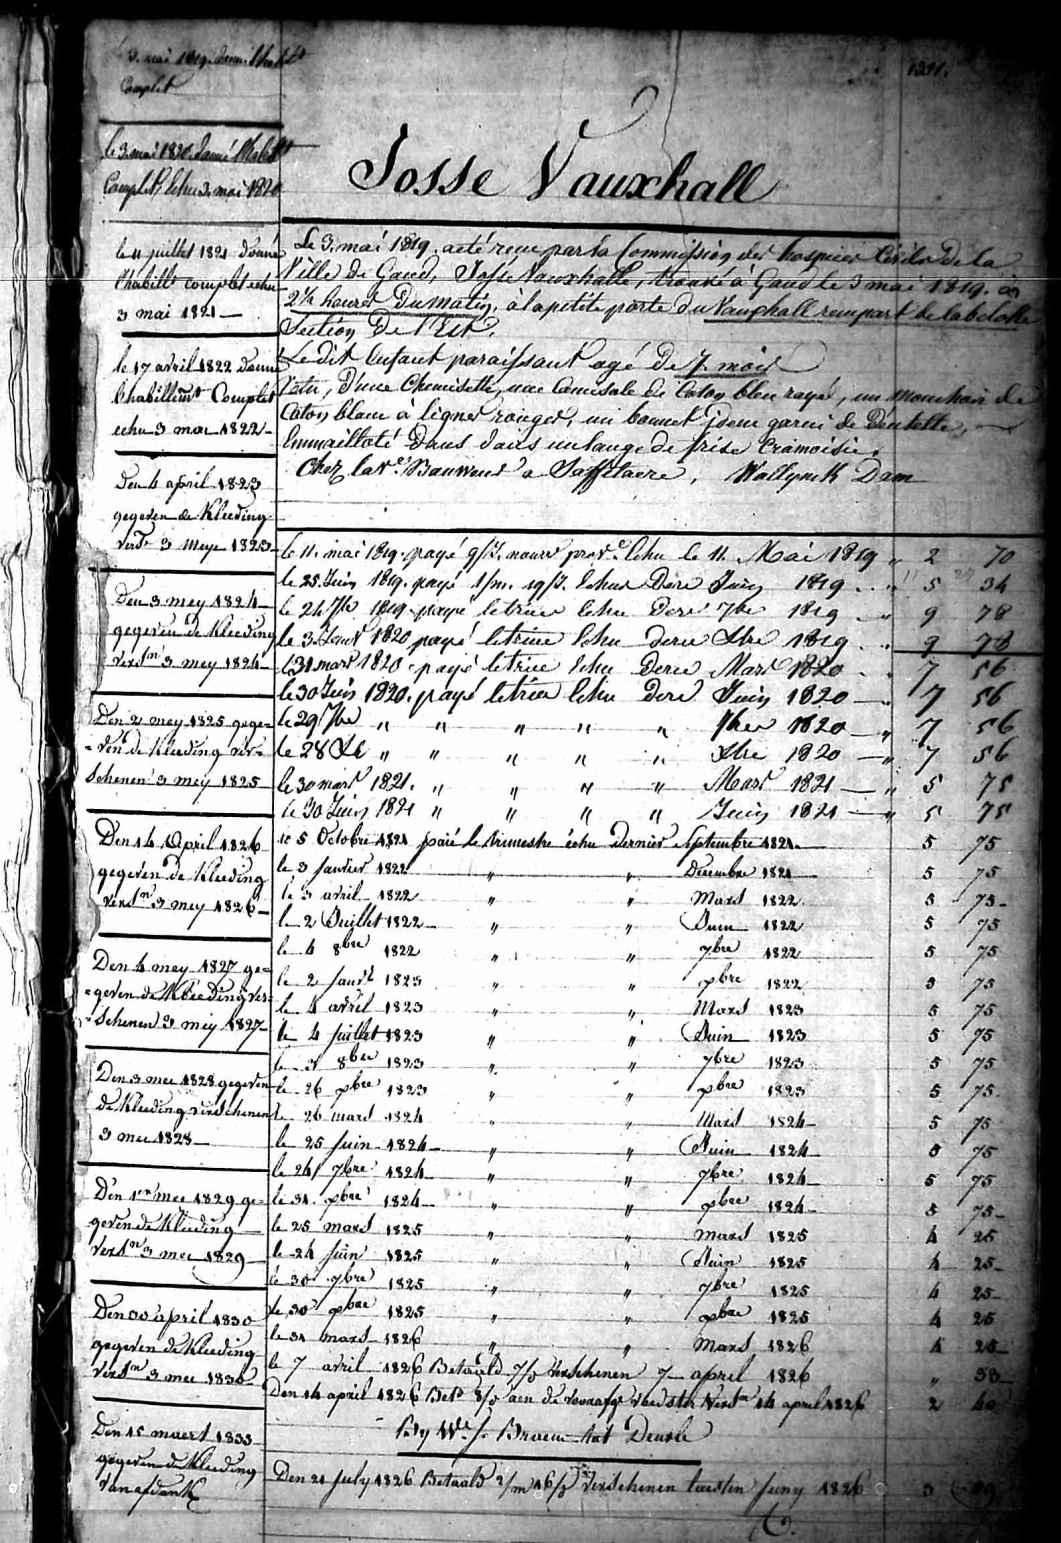 3 mai 1819 donné l'habillt
Complet
le 3 mai 1820 donné l'habillt
Complet, échu 3 mai 1820
le 11 juillet 1821 donné
l'habillt complet echu
3 mai 1821
le 17 avril 1822 donné
l'habillemt Complet
echu 3 mai 1822
Den 4 april 1823
gegeven de Kleeding
verst 3 meye 1823
Den 3 mey 1824
gegeven de Kleeding
verstn 3 mey 1824
Den 2 mey 1825 gege-
-ven de Kleeding ver-
schenen 3 mey 1825
Den 14 April 1826
gegeven de Kleeding
verstn 3 mey 1826
Den 4 mey 1827 ge-
-geven de Kleeding ver-
-schenen 3 mey 1827
Den 3 mee 1828 gegeven
de Kleeding verschenen
3 mee 1828
Den 1en mee 1829 ge-
geven de Kleeding
verstn 3 mee 1829
Den 30 april 1830
gegeven de Kleeding
verstn 3 mee 1830
Den 15 maert 1833
gegeven de Kleeding
van afdank
Josse Vauxhall
Le 3 mai 1819. acté reçu par la Commission des hospices Civils de la
Ville de Gand, Josse Vauxhall, trouvé à Gand le 3 mai 1819. à
2½ heures du matin, à la petite porte du Vauxhall rempart de la
Section de l'Est.
Le dit Enfant paraissant agé de 7 mois
Vetu, d'une Chemisette, une Camisole de Coton bleu rayé, un mouchoir de
Coton blanc à lignes rouges, un bonnet idem garni de Dentelle,
Emmailloté dans un lange de frise Cramoisie.
Chez la Ve a Saffelaere,
le 11 mai 1819 payé 9/J. nourr prov. Echu le 11 Mai 1819 " 2 70
le 25 Juin 1819 payé 1/m. 19/J. Echus Dere Juin 1819 " 5 34
le 24 7bre 1819 payé le trim Echu dere 7bre 1819 " 9 78
le 3 Janv 1820 payé le trim Echu dere Xbre 1819 " 9 78
le 31 mars 1820 payé le trim Echu dere Mars 1820 " 7 56
le 30 Juin 1820 payé le trim Echu dere Juin 1820 " 7 56
le 29 7bre " " " " " 7bre 1820 " 7 56
le 28 Xbre " " " " " Xbre 1820 " 7 56
le 30 mars 1821 " " " " Mars 1821 " 5 75
le 30 Juin 1821 " " " " Juin 1821 " 5 75
le 5 Octobre 1821 paié le trimestre échu dernier Septembre 1821 5 75
le 3 Janvier 1822 " " Décembre 1821 5 75
le 3 avril 1822 " " Mars 1822 5 75
le 2 Juillet 1822 " " Juin 1822 5 75
le 4 8bre 1822 " " 7bre 1822 5 75
le 2 Janvr 1823 " " Xbre 1822 5 75
le 4 avril 1823 " " Mars 1823 5 75
le 4 juillet 1823 " " Juin 1823 5 75
le 3 8bre 1823 " " 7bre 1823 5 75
le 26 Xbre 1823 " " Xbre 1823 5 75
le 26 mars 1824 " " Mars 1824 5 75
le 25 Juin 1824 " " Juin 1824 5 75
le 24 7bre 1824 " " 7bre 1824 5 75
le 31 Xbre 1824 " " Xbre 1824 5 75
le 25 mars 1825 " " Mars 1825 4 25
le 24 juin 1825 " " Juin 1825 4 25
le 30 7bre 1825 " " 7bre 1825 4 25
le 30 Xbre 1825 " " Xbre 1825 4 25
le 31 mars 1826 " " Mars 1826 4 25
le 7 avril 1826 Betaeld 7/J verschenen 7 april 1826 "
Den 14 april 1826 Betd 8/J aen de voedster verstn 14 april 1826 2 40
By We J.
Den 21 july 1826 Betaeld 2/m 16/J verschenen laesten Juny 1826 3